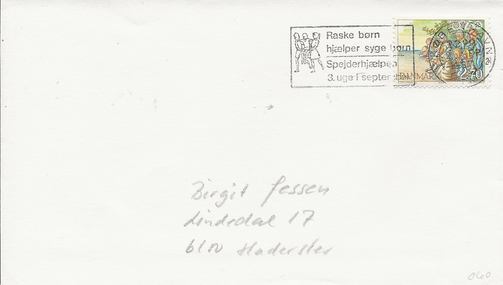 Raske børn
hjælper syge børn
Spejderhjælpen
3. uge i septer
DANMARK
Birgit Jessen
Lindedal 17
6100 Haderslev
060